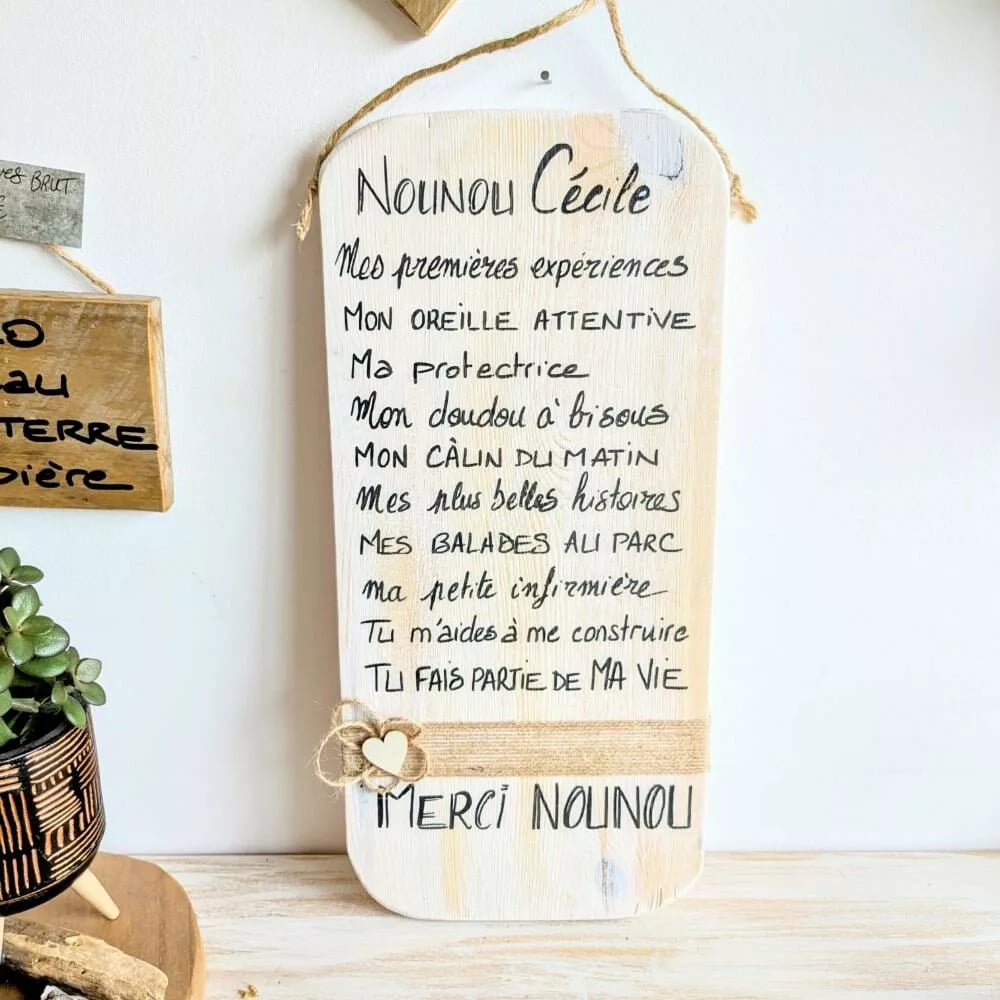 Nounou Cécile
Mes premières expériences
MON OREILLE ATTENTIVE
Ma protectrice
Mon doudou à bisous
MON CÀLIN DU MATIN
Mes plus belles histoires
MES BALADES AU PARC
ma petite infirmière
Tu m'aides à me construire
TU FAIS PARTIE DE MA VIE
MERCI NOUNOU
BRUT
au
TERRE